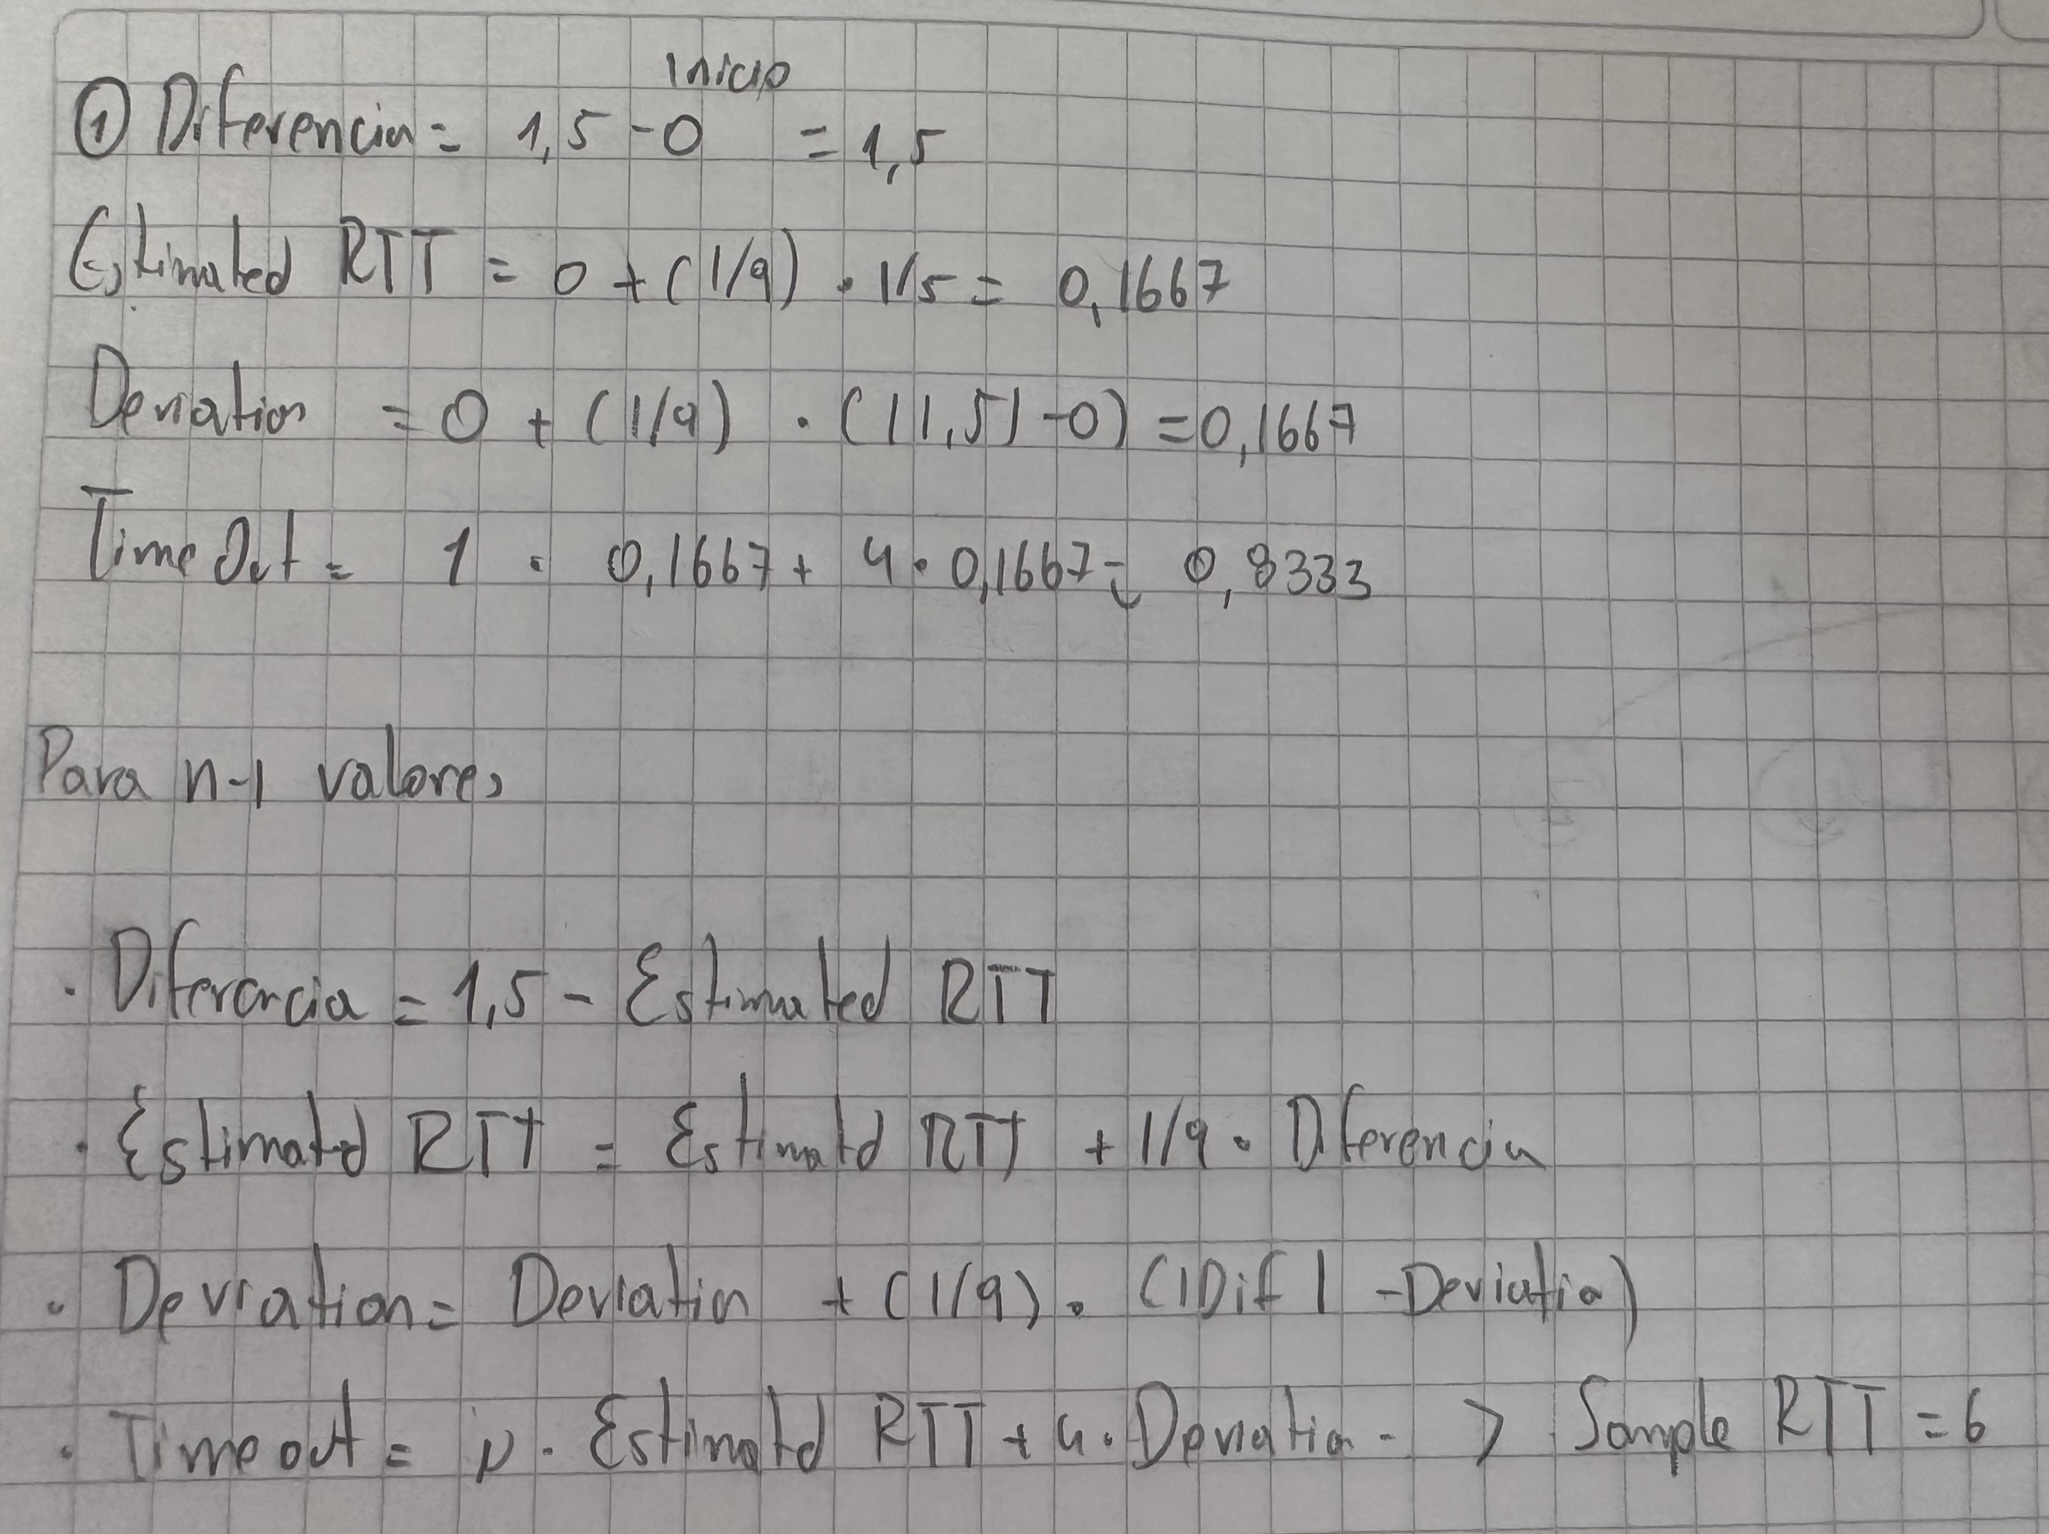 Inicio
① Diferencia = 1,5 - 0 = 1,5
Estimated RTT = 0 + (1/9) · 1,5 = 0,1667
Deviation = 0 + (1/9) · (|1,5| - 0) = 0,1667
TimeOut = 1 · 0,1667 + 4 · 0,1667 = 0,8333
Para n-1 valores
· Diferencia = 1,5 - Estimated RTT
· Estimated RTT = Estimatd RTT + 1/9 · Diferencia
· Deviation = Deviation + (1/9) · (|Dif| - Deviatio)
· Timeout = μ · Estimatd RTT + 4 · Deviation · > Sample RTT = 6